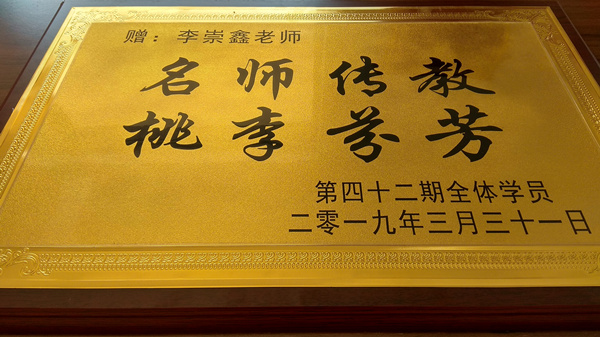 赠：李崇鑫老师
名师传教
桃李芬芳
第四十二期全体学员
二零一九年三月三十一日